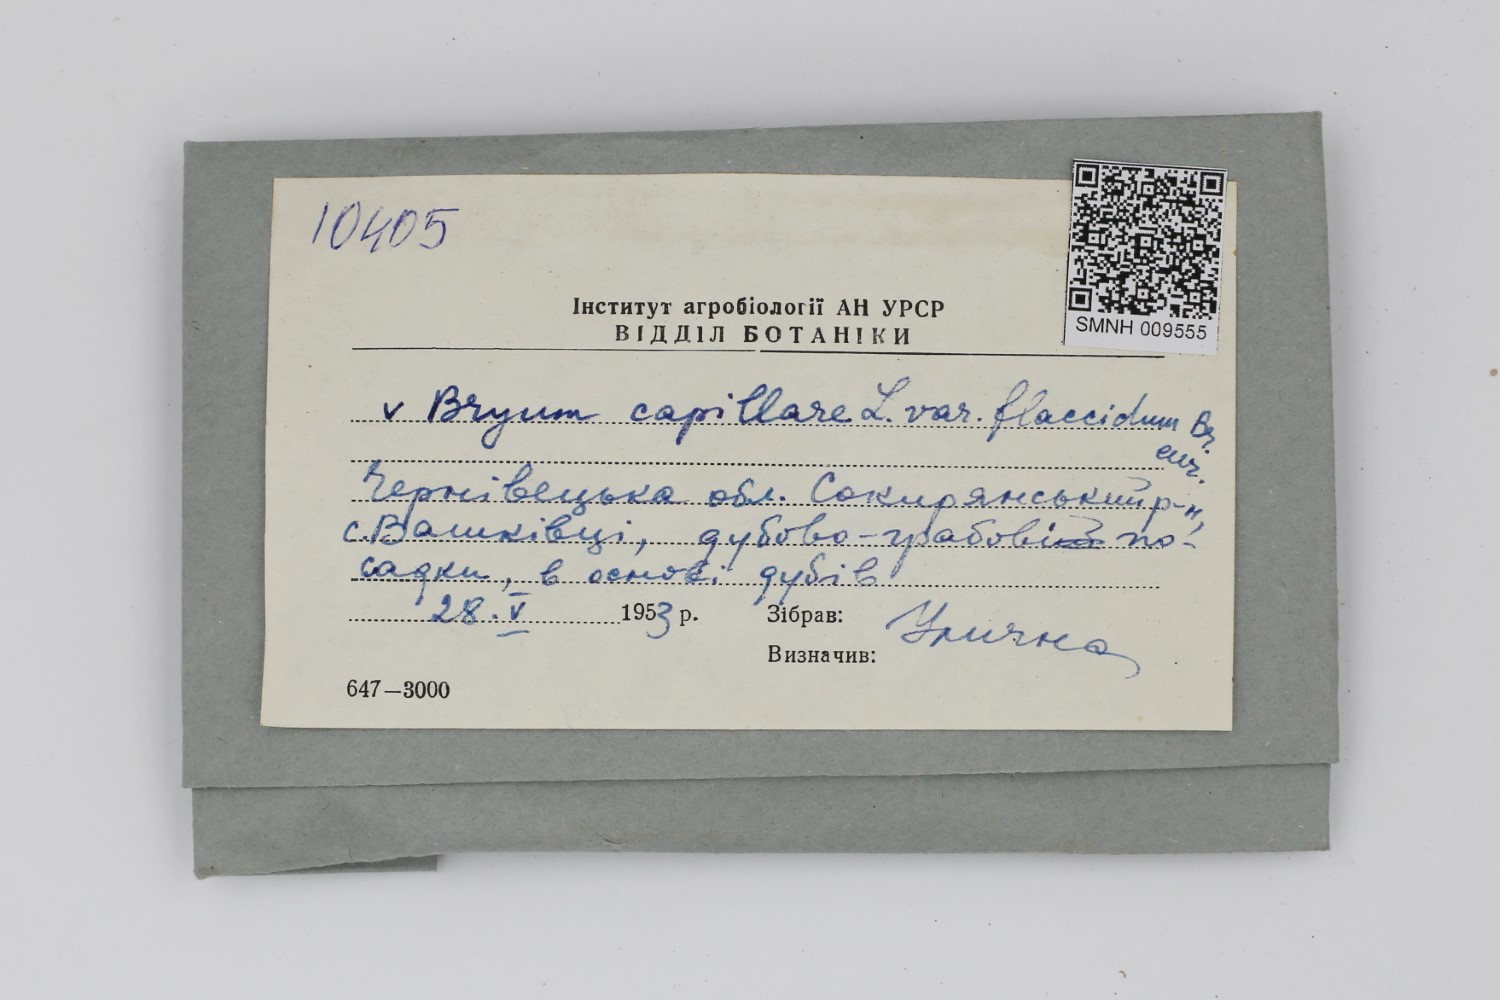 10405
SMNH 009555
Інститут агробіології АН УРСР
ВІДДІЛ БОТАНІКИ
v Bryum capillare L. var. flaccidum Br.
eur.
Чернівецька обл. Сокирянський р-н,
с. Вашківці, дубово-грабові по-
садки, в основі дубів
28.V 1953 р. Зібрав: Улична
Визначив:
647—3000